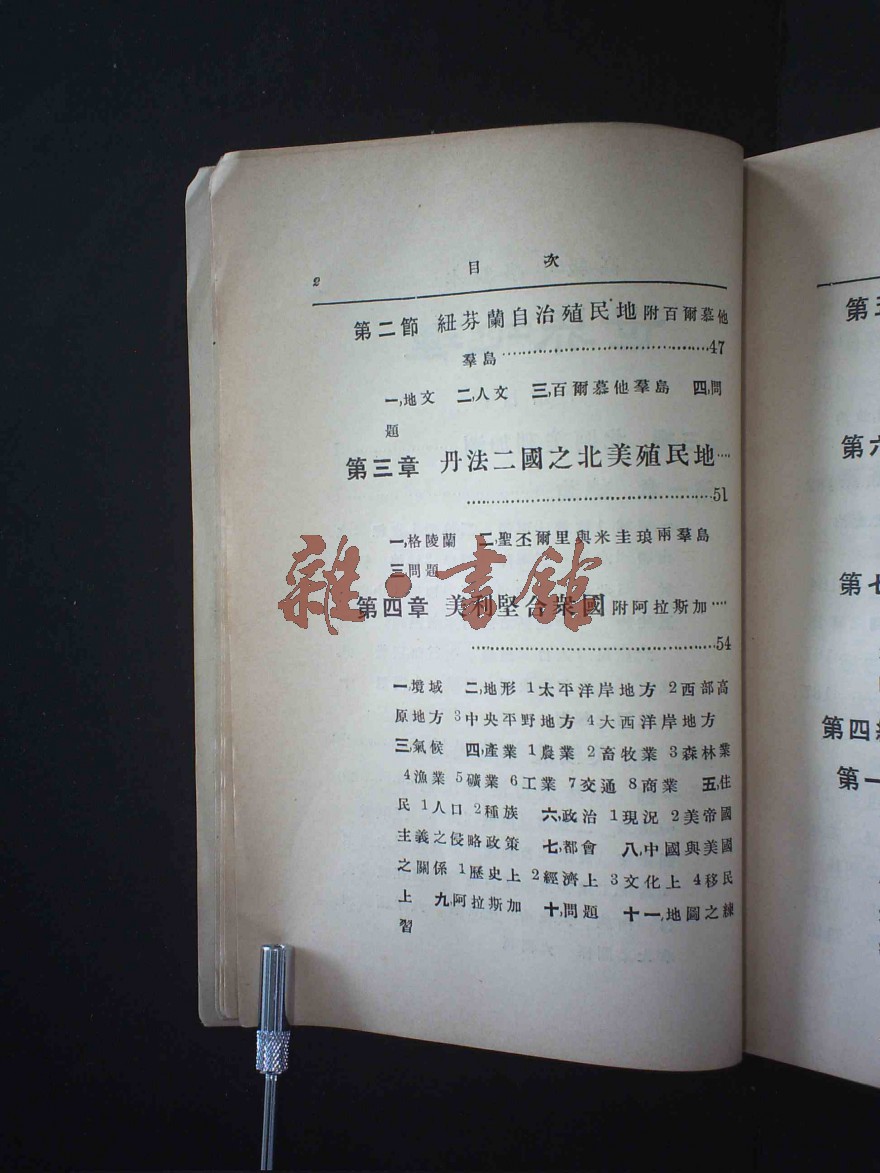 2
目次
第二節 紐芬蘭自治殖民地附百爾慕他
羣島……47
一,地文 二,人文 三,百爾慕他羣島 四,問
題
第三章 丹法二國之北美殖民地……
……51
一,格陵蘭 二,聖丕爾里與米圭琅兩羣島
三問題
第四章 美利堅合衆國附阿拉斯加……
……54
一,境域 二,地形 1太平洋岸地方 2西部高
原地方 3中央平野地方 4大西洋岸地方
三,氣候 四,產業 1農業 2畜牧業 3森林業
4漁業 5礦業 6工業 7交通 8商業 五,住
民 1人口 2種族 六,政治 1現況 2美帝國
主義之侵略政策 七,都會 八,中國與美國
之關係 1歷史上 2經濟上 3文化上 4移民
上 九,阿拉斯加 十,問題 十一,地圖之練
習
雜·書館
第
第六
第七
第四
第一